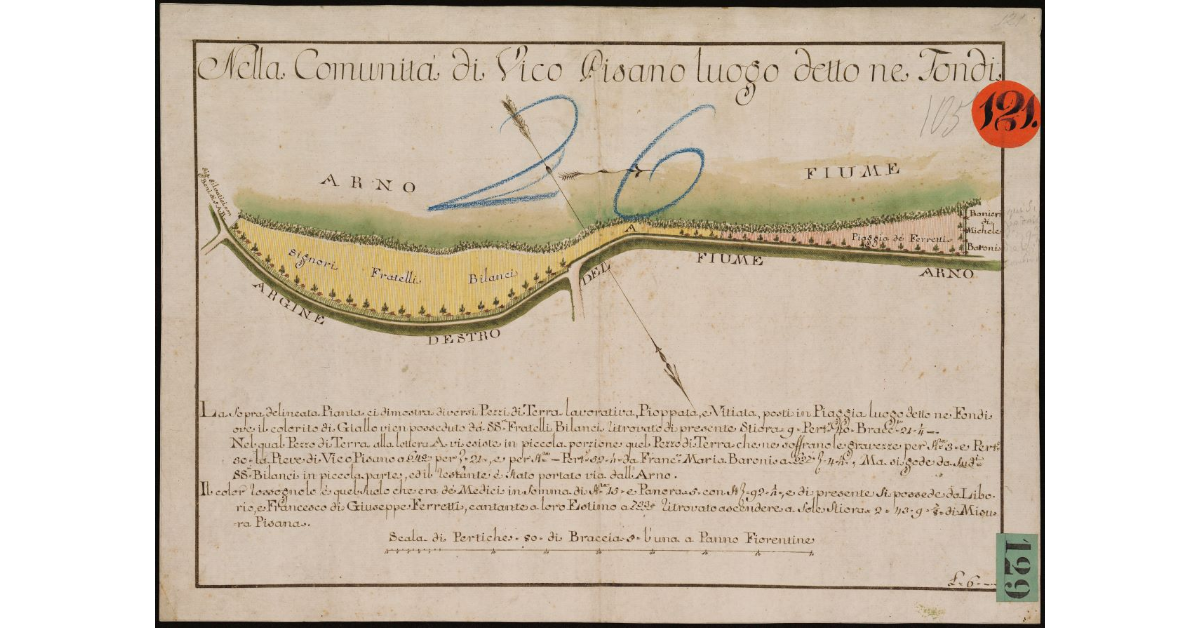 Nella Comunità di Vico Pisano luogo detto ne Fondi
105
121.
26
ARNO
FIUME
Signori Fratelli Bilanci
A
Piaggia de Ferretti
Ranieri
di
Michele
Baroni
ARGINE DESTRO DEL FIUME ARNO
La sopra delineata Pianta ci dimostra diversi Pezzi di Terra lavorativa, Pioppata, e Vitiata, posti in Piaggia luogo detto ne Fondi
ove il colorito di Giallo vien posseduto da SS.ri Fratelli Bilanci ritrovato di presente Stiora 9. Pert.
Nel qual Pezzo di Terra alla lettera A vi esiste in piccola porzione quel Pezzo di Terra che ne soffrano le gravezze per
la Pieve di Vico Pisano a per e per da Franc.o Maria Baroni a Ma si gode da
SS.ri Bilanci in piccola parte, ed il restante è stato portato via dall'Arno.
Il color rossognolo è quel suolo che era de Medici in somma di e Panora 5. con e di presente si possede da Libo-
rio, e Francesco di Giuseppe Ferretti, cantante a loro Estimo a ritrovato ascendere a Sole Stiora 2. 43. 9. di Misu-
ra Pisana.
Scala di Pertiche 80 di Braccia 5 l'una a Panno Fiorentine
129